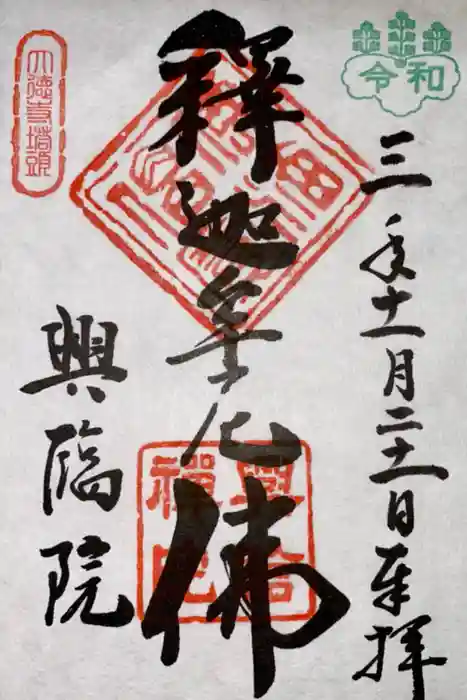 令和
三年十一月二十一日奉拝
釋迦牟尼佛
興臨院
大徳寺塔頭